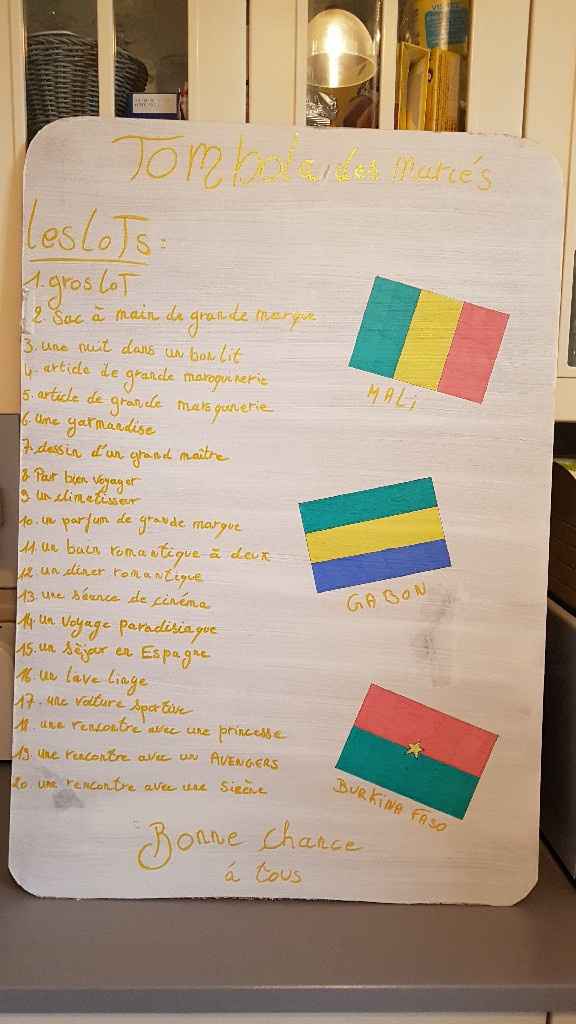 Tombola des Mariés
les LoTs :
1. gros LoT
2. Sac à main de grande marque
3. une nuit dans un bon lit
4. article de grande maroquinerie
5. article de grande maroquinerie
6. Une garmandise
7. dessin d'un grand maître
8 Pour bien voyager
9 un climatisseur
10. un parfum de grande marque
11. un bain romantique à deux
12. un diner romantique
13. une séance de cinéma
14. un voyage paradisiaque
15. un séjour en Espagne
16. un lave linge
17. une voiture sportive
18. une rencontre avec une princesse
19. une rencontre avec un AVENGERS
20. une rencontre avec une Sirène
MALi
GABON
BURKINA FASO
Bonne chance
à tous